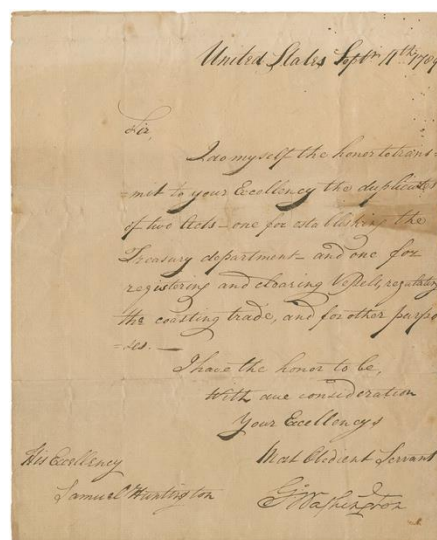 United States Septr. 11th 1789
Sir,
I do myself the honor to trans=
=mit to your Excellency the duplicates
of two Acts – one for establishing the
Treasury department – and one for
registering and clearing Vessels, regulating
the coasting trade, and for other purpo
=ses. —
I have the honor to be,
With due consideration
Your Excellencys
Most Obedient Servant
His Excellency
Samuel Huntington
Go Washington